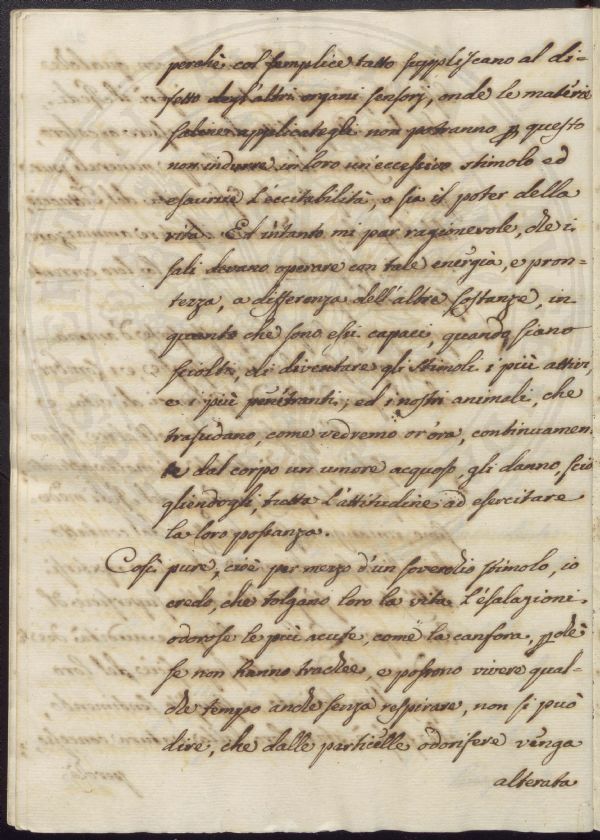 perchè col semplice tatto suppliscano al di-
fetto degl'altri organi sensorj, onde le materie
saline applicategli non potranno p questo
non indurre in loro un'eccessivo stimolo ed
esaurire l'eccitabilità, o sia il poter della
vita. Ed intanto mi par ragionevole, che i
sali devano operare con tale energia, e pron-
tezza, a differenza dell'altre sostanze, in
quanto che sono essi capaci, quando siano
sciolti, di diventare gli stimoli i più attivi,
e i più penetranti; ed i nostri animali, che
trasudano, come vedremo or'ora, continuamen
te dal corpo un umore acquoso, gli danno, scio
gliendogli, tutta l'attitudine ad esercitare
la loro possanza.
Così pure, cioè per mezzo d'un soverchio stimolo, io
credo, che tolgano loro la vita l'esalazioni
odorose le più acute, come la canfora, pchè
se non hanno trachee, e possono vivere qual-
che tempo anche senza respirare, non si può
dire, che dalle particelle odorifere venga
alterata